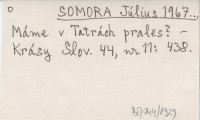 o SOMORA Július 1967..,
Máme v Tatrách prales? -
Krásy Slov. 44, nr 11: 438.